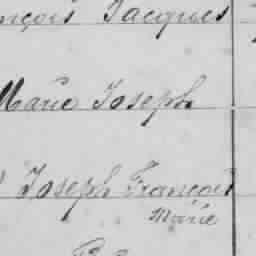 nçois Jacques
Marie Joseph
Joseph François
Marie